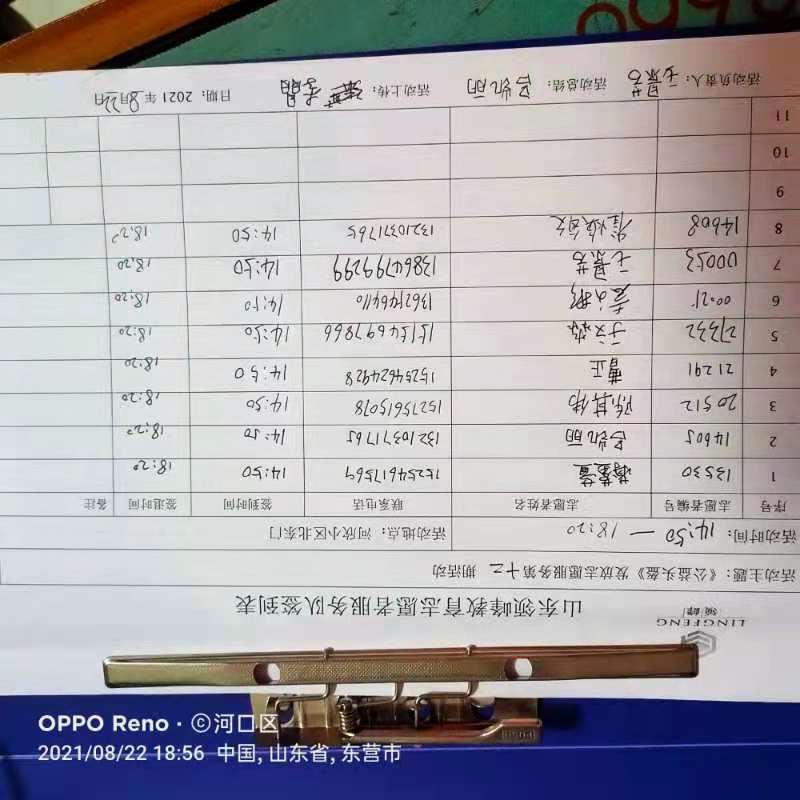 LINGFENG
领峰
山东领峰教育志愿者服务队签到表
活动主题：《公益头盔》发放志愿服务第十二期活动
活动时间：14:50 — 18:20 活动地点：河欣小区北东门
序号 志愿者编号 志愿者姓名 联系电话 签到时间 签退时间 备注
1 13530 15254617569 14:50 18:20
2 14605 吕凯丽 13210371765 14:50 18:20
3 20512 陈其伟 15275615078 14:50 18:20
4 21291 曹正 15254624928 14:50 18:20
5 27332 15154697866 14:50 18:20
6 00021 13621466410 14:50 18:20
7 00053 王景芳 13864799299 14:50 18:20
8 14608 13210371765 14:50 18:20
9
10
11
活动负责人：王景芳 活动总结：吕凯丽 活动上传：李晶 日期：2021年8月22日
OPPO Reno · ©河口区
2021/08/22 18:56 中国, 山东省, 东营市